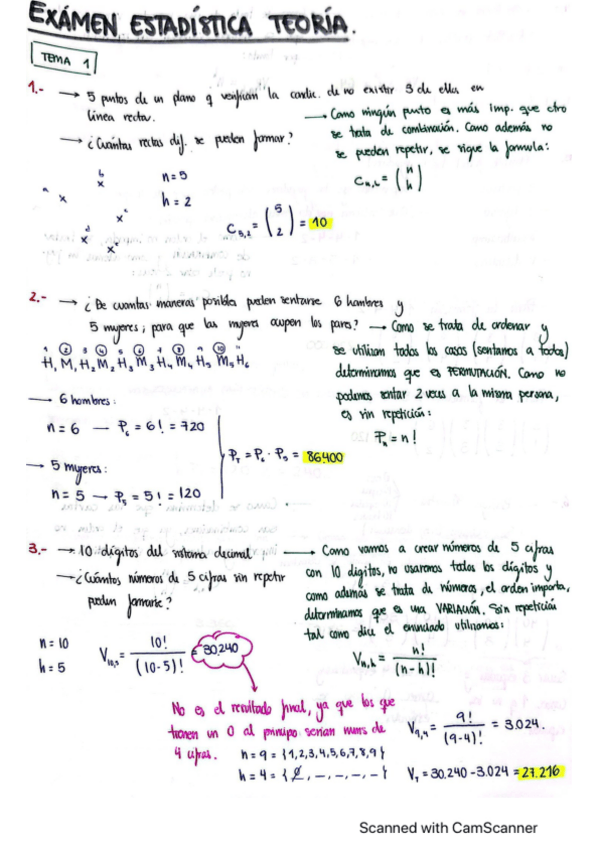 EXÁMEN ESTADÍSTICA TEORÍA.
TEMA 1
1.- → 5 puntos de un plano q verifican la condic. de no existir 3 de ellos en
línea recta.
→ ¿Cuántas rectas dif. se pueden formar?
→ Como ningún punto es más imp. que otro
se trata de combinación. Como además no
se pueden repetir, se sigue la formula:
C n,h = (n h)
a b c d e
n=5
h=2
C 5,2 = (5 2) = 10
2.- → ¿De cuantas maneras posibles pueden sentarse 6 hombres y
5 mujeres, para que las mujeres ocupen los pares?
→ Como se trata de ordenar y
se utilizan todos los casos (sentamos a todos)
determinamos que es PERMUTACIÓN. Como no
podemos sentar 2 veces a la misma persona,
es sin repetición:
Pn = n!
1 2 3 4 5 6 7 8 9 10 11
H₁ M₁ H₂ M₂ H₃ M₃ H₄ M₄ H₅ M₅ H₆
→ 6 hombres:
n=6 → P₆ = 6! = 720
→ 5 mujeres:
n=5 → P₅ = 5! = 120
PT = P₆ · P₅ = 86400
3.- → 10 dígitos del sistema decimal
→ ¿Cuántos números de 5 cifras sin repetir
pueden formarse?
→ Como vamos a crear números de 5 cifras
con 10 dígitos, no usaremos todos los dígitos y
como además se trata de números, el orden importa,
determinamos que es una VARIACIÓN. Sin repetición
tal como dice el enunciado utilizamos:
V n,h = n! / (n-h)!
n=10
h=5
V 10,5 = 10! / (10-5)! = 30.240
No es el resultado final, ya que los que
tienen un 0 al principio serían nums de
4 cifras.
n=9 = {1,2,3,4,5,6,7,8,9}
h=4 = {0, -, -, -, -}
V 9,4 = 9! / (9-4)! = 3.024.
VT = 30.240 - 3.024 = 27.216
Scanned with CamScanner